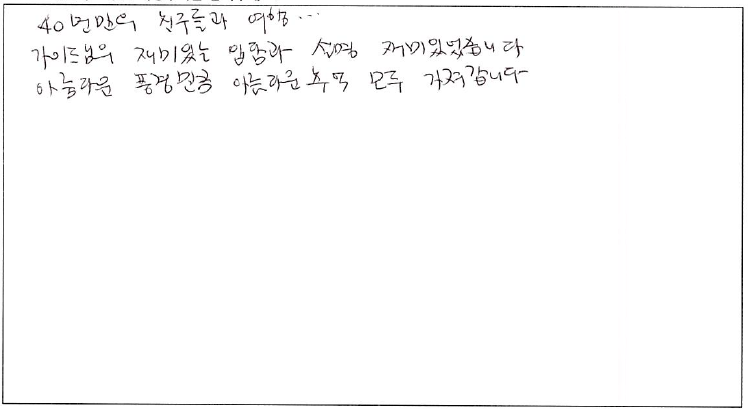 40년만의 친구들과 여행...
가이드님의 재미있는 입담과 설명 재미있었습니다
아늠다운 풍경만큼 아름다운 추억 모두 가져갑니다